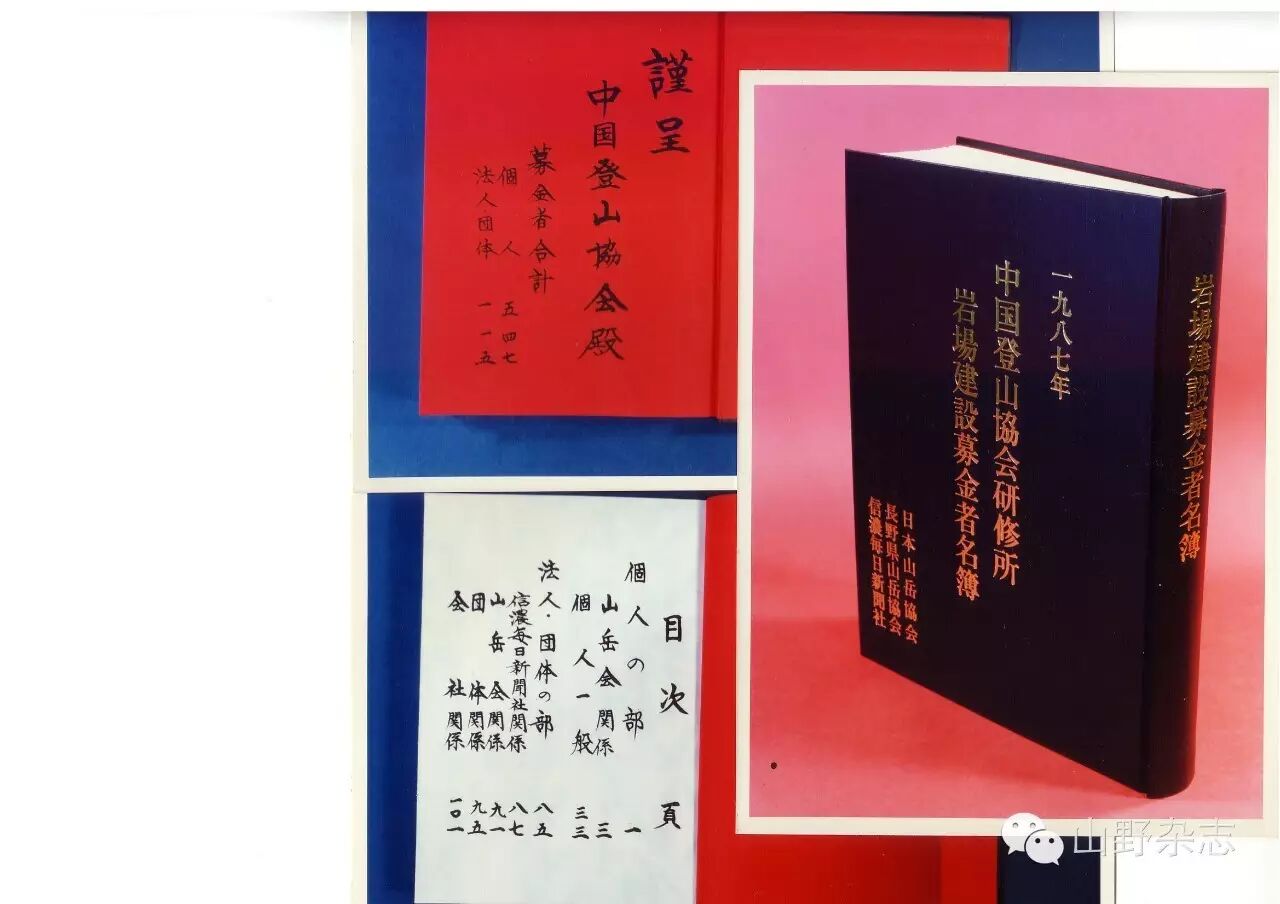 謹呈
中国登山協会殿
募金者合計
個人 五四七
法人・団体 一一五
目次 頁
個人の部 一
山岳会関係 三
個人一般 三三
法人・団体の部 八五
信濃毎日新聞社関係 八七
山岳会関係 九一
団体関係 九五
会社関係 一〇一
一九八七年
中国登山協会研修所
岩場建設募金者名簿
日本山岳協会
長野県山岳協会
信濃毎日新聞社
岩場建設募金者名簿
山野杂志